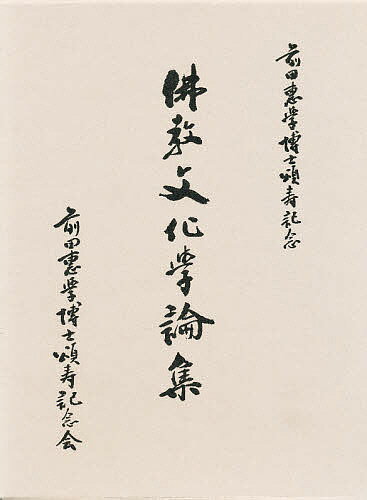 前田惠学博士頌寿記念
佛教文化学論集
前田惠学博士頌寿記念会